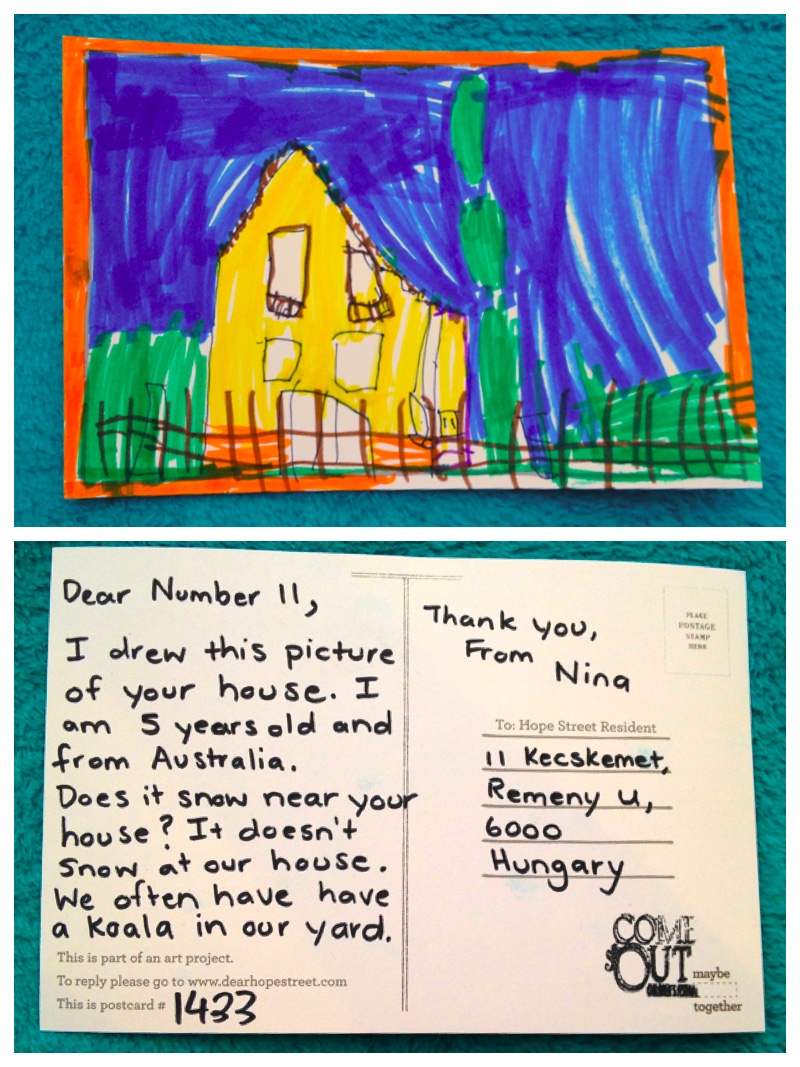 Dear Number 11,
I drew this picture
of your house. I
am 5 years old and
from Australia.
Does it snow near your
house? It doesn't
snow at our house.
We often have have
a koala in our yard.
This is part of an art project.
To reply please go to www.dearhopestreet.com
This is postcard # 1433
Thank you,
From Nina
PLACE
POSTAGE
STAMP
HERE
To: Hope Street Resident
11 Kecskemet,
Remeny u,
6000
Hungary
COME
OUT
maybe
together